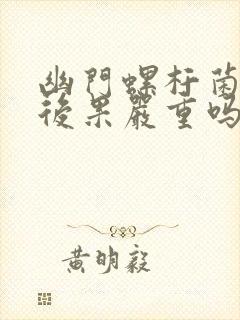 幽門螺杆菌
後果嚴重嗎
黃明毅